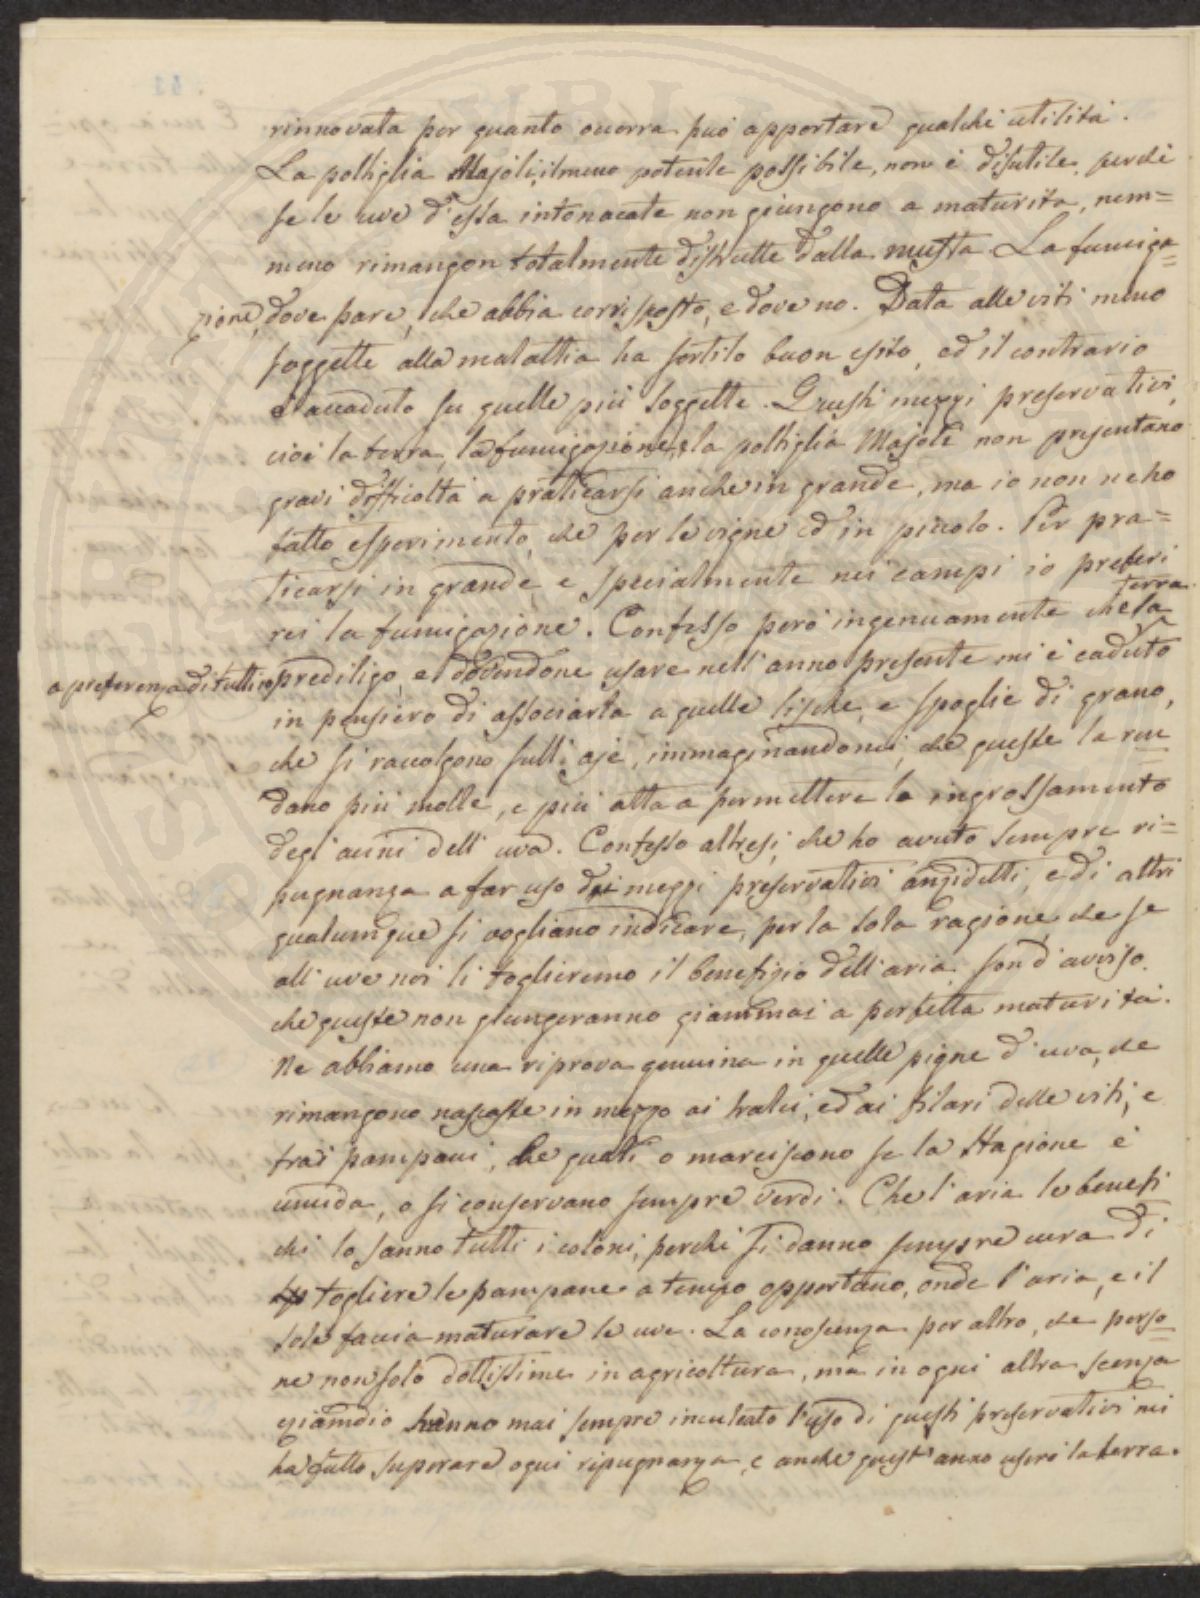 rinnovata per quanto ocorra può apportare qualche utilità.
La poltiglia Majoli, il meno potente possibile, non è disutile, perchè
se le uve d'essa intonacate non giungono a maturita, nem=
meno rimangon totalmente distrutte dalla muffa. La fumiga=
zione, dove pare, che abbia corrisposto, e dove no. Data alle viti meno
soggette alla malattia ha sortito buon esito, ed il contrario
è accaduto su quelle più soggette. Questi mezzi preservativi,
cioè la terra, la fumigazione, e la poltiglia Majoli non presentano
gravi difficoltà a praticarsi anche in grande, ma io non ne ho
fatto esperimento, che per le vigne ed in picolo. Per pra=
ticarsi in grande, e specialmente nei campi io preferi
rei la fumigazione. Confesso però ingenuamente che la terra
a preferenza di tutti io prediligo, e dovendone usare nell'anno presente mi è caduto
in pensiero di associarla a quelle lische, e spoglie di grano,
che si raccolgono sulle aje, immaginandomi, che queste la ren
dano più molle, e più atta a permettere lo ingrossamento
degl'acini dell'uva. Confesso altresi, che ho avuto sempre ri=
pugnanza a far uso dei mezzi preservativi anzidetti, e di altri
qualunque si vogliano indicare, per la sola ragione, che se
all'uve noi li toglieremo il benefizio dell'aria, son d'avviso,
che queste non giungeranno giammai a perfetta maturità.
Ne abbiamo una riprova genuina in quelle pigne d'uva, che
rimangono nascoste in mezzo ai tralci, ed ai filari delle viti, e
trai pampani, le quali o marciscono se la stagione è
umida, o si conservano sempre verdi. Che l'aria le benefi
chi lo sanno tutti i coloni, perchè si danno sempre cura di
togliere le pampane a tempo opportuno, onde l'aria, e il
sole faccia maturare le uve. La conoscenza per altro, che perso=
ne non solo dottissime in agricoltura, ma in ogni altra scenza
eziamdio hanno mai sempre inculcato l'uso di questi preservativi mi
ha fatto superare ogni ripugnanza, e anche quest'anno userò la terra.